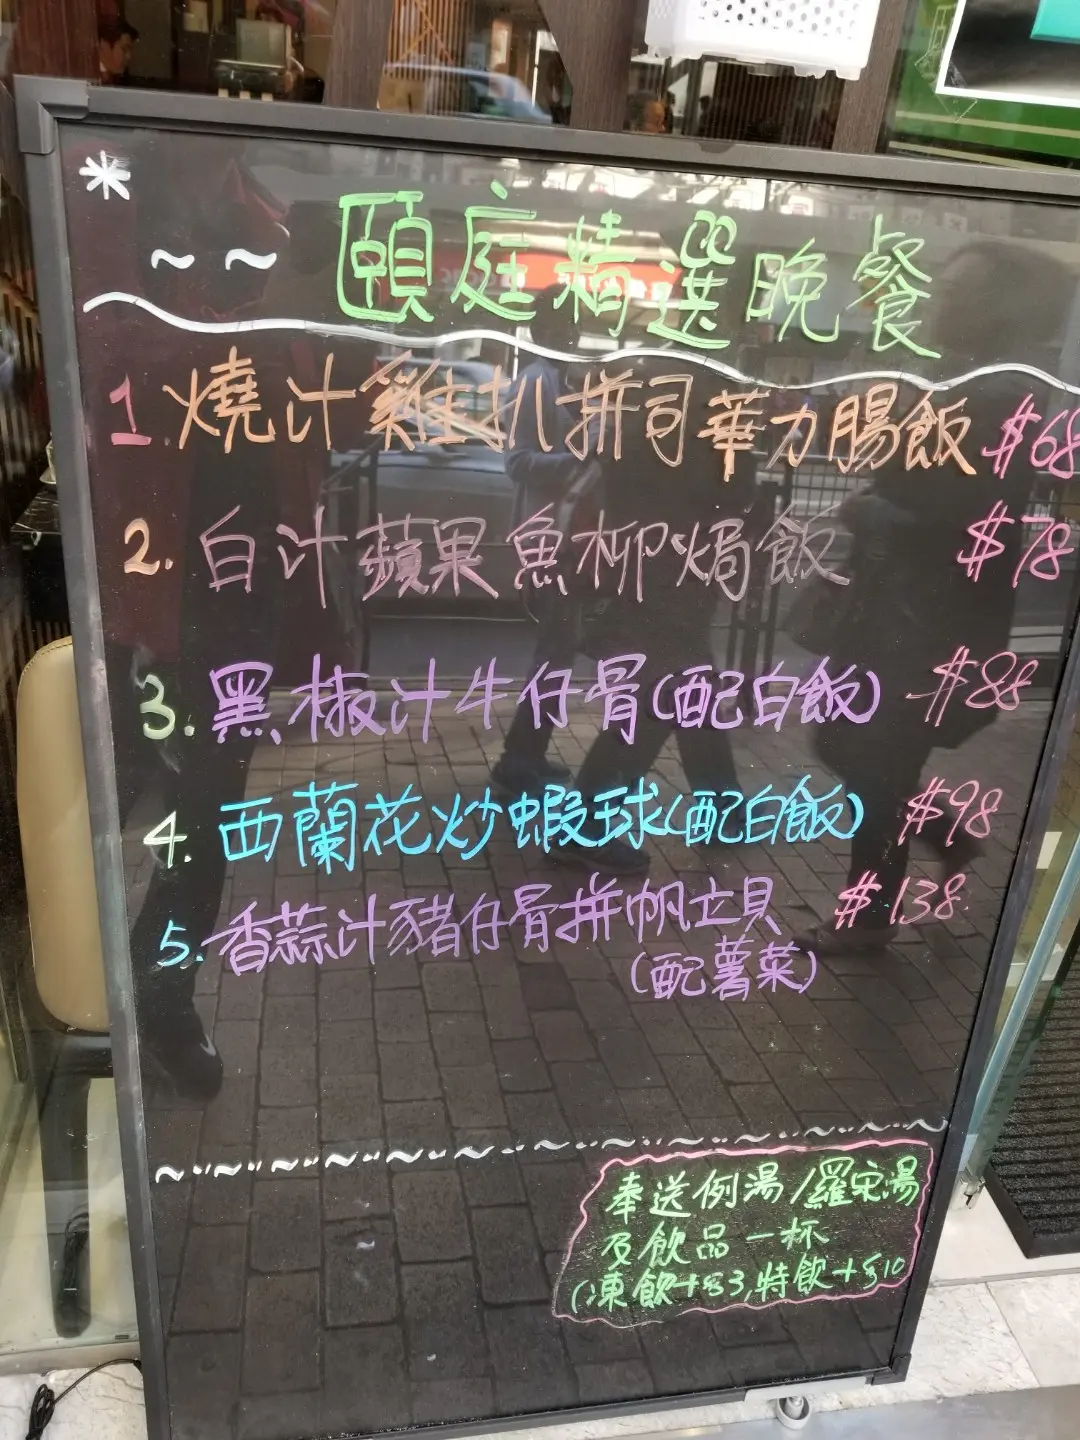 ~ ~ 頤庭精選晚餐
1. 燒汁雞扒拼司華力腸飯 $68
2. 白汁蘋果魚柳焗飯 $78
3. 黑椒汁牛仔骨(配白飯) $88
4. 西蘭花炒蝦球(配白飯) $98
5. 香蒜汁豬仔骨拼帆立貝 $138
(配薯菜)
奉送例湯/羅宋湯
及飲品一杯
(凍飲+$3,特飲+$10